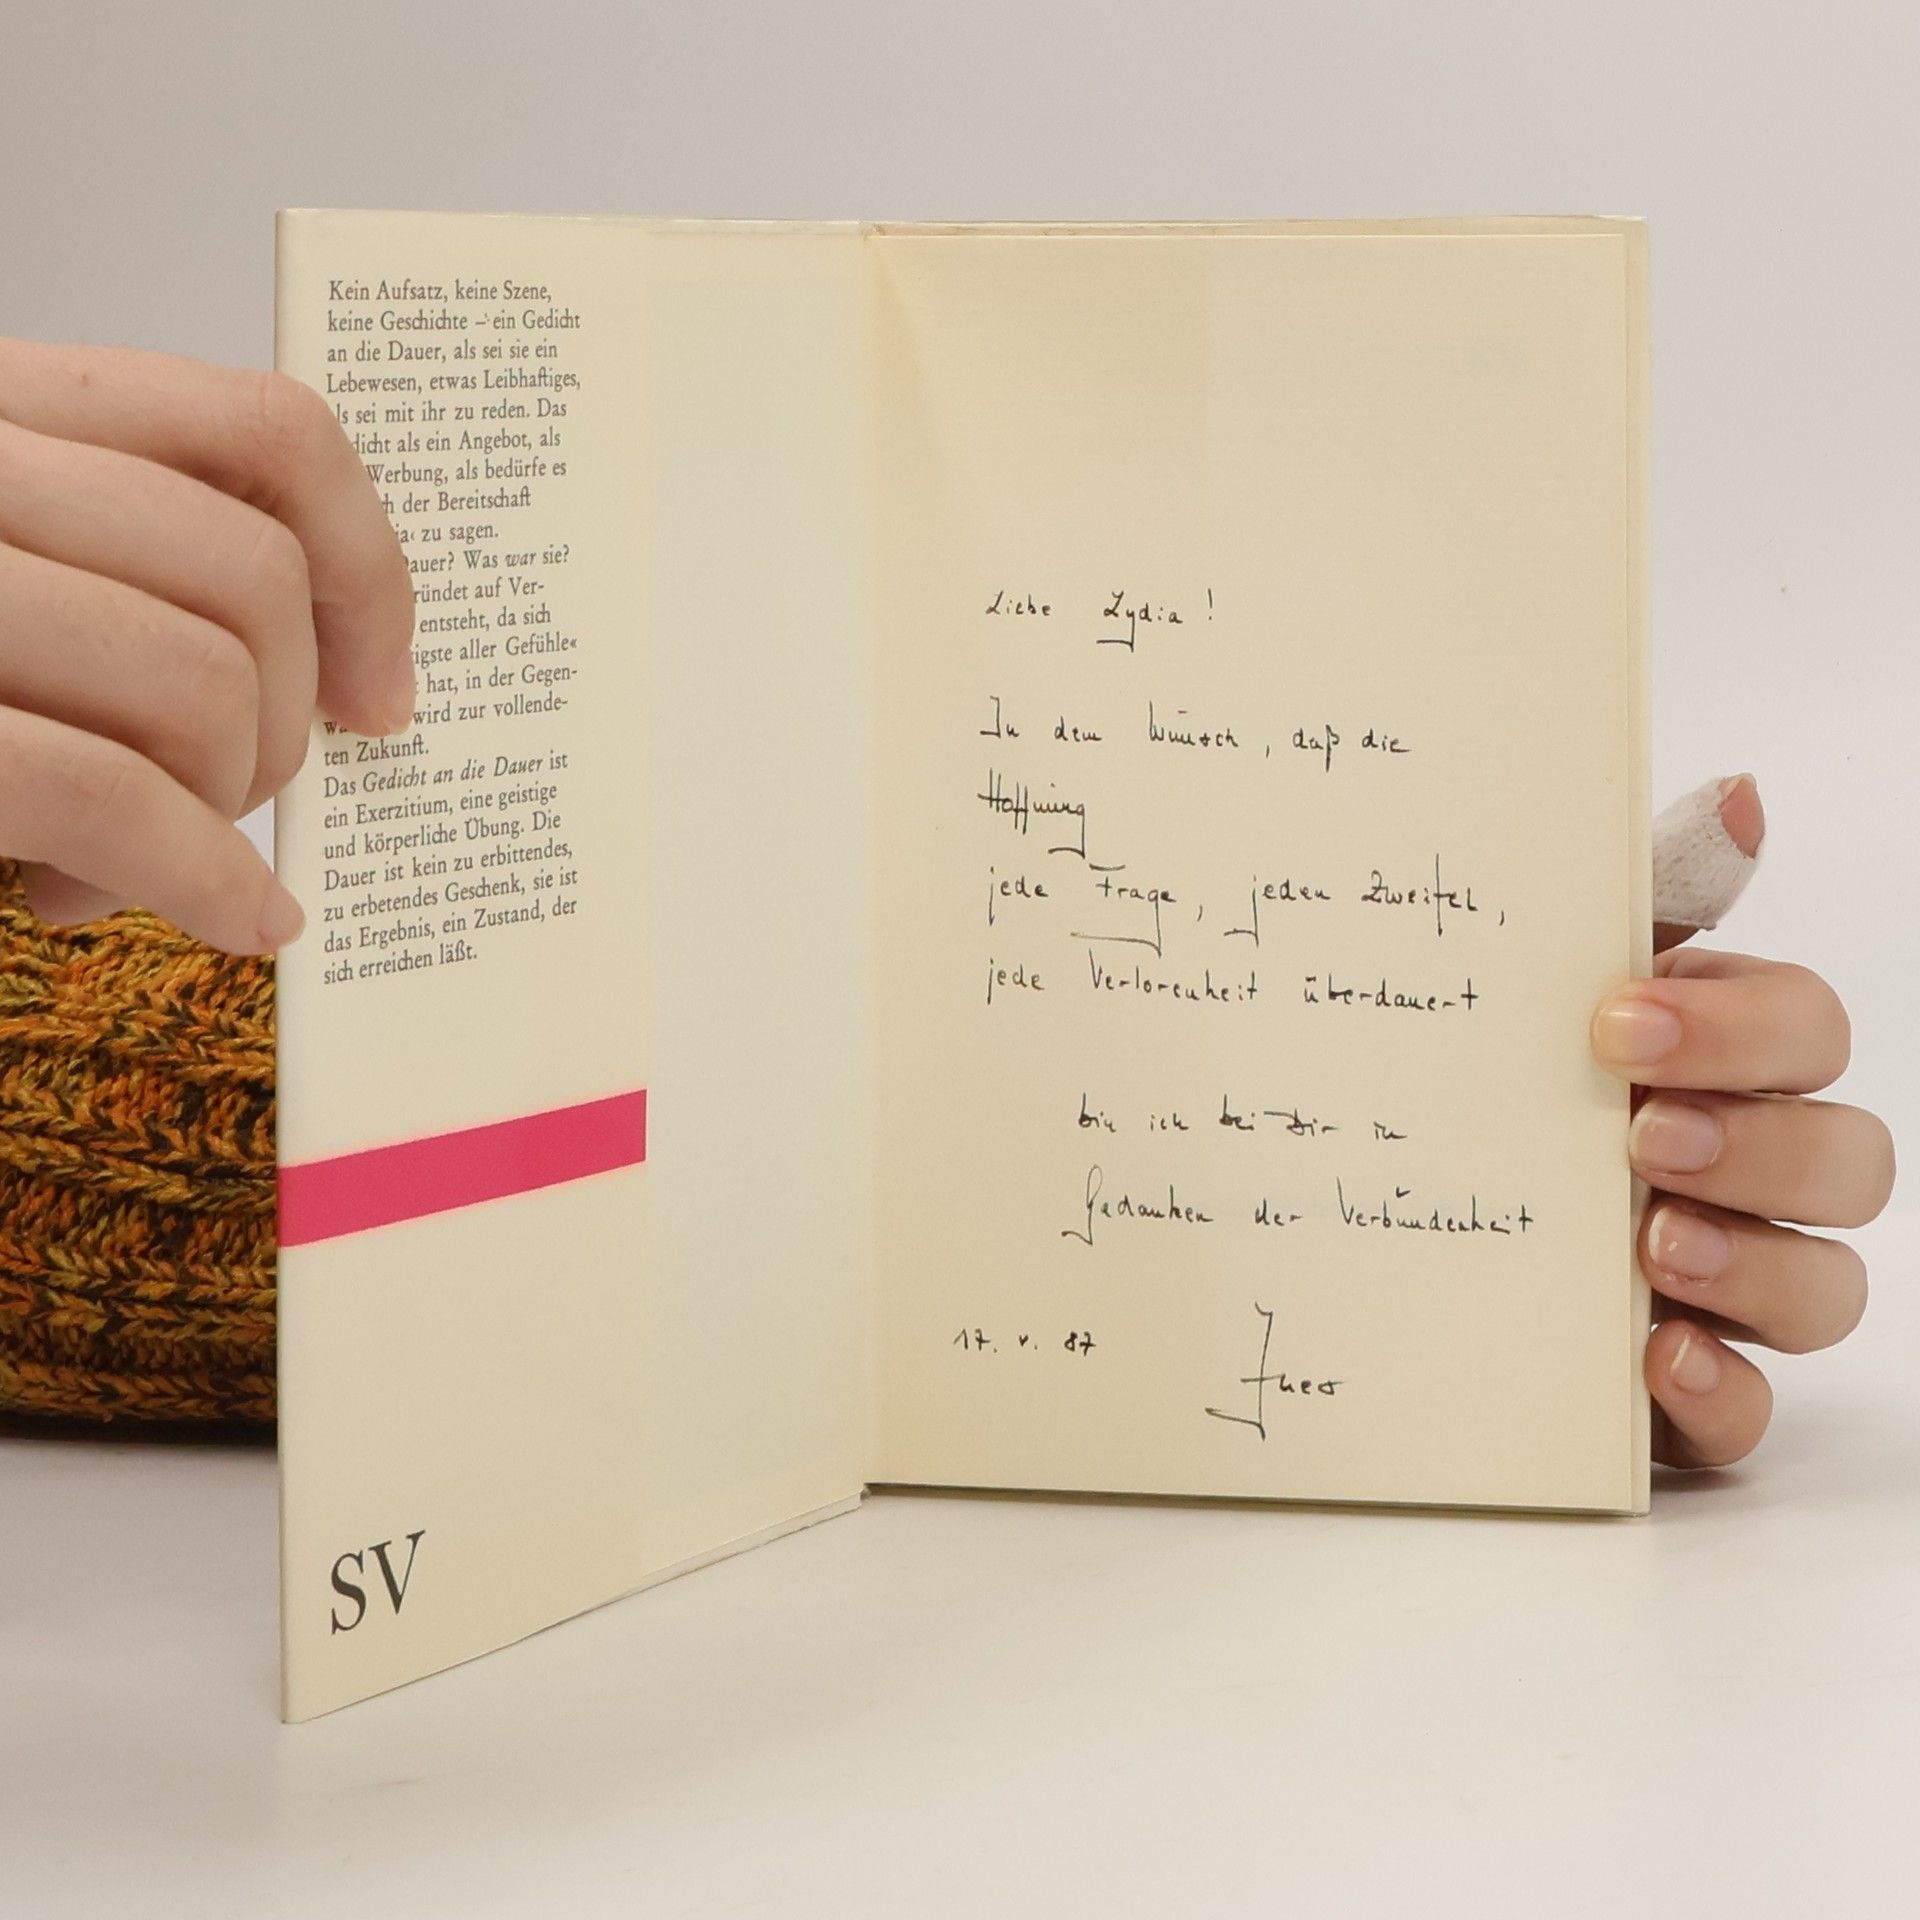 Kein Aufsatz, keine Szene,
keine Geschichte – ein Gedicht
an die Dauer, als sei sie ein
Lebewesen, etwas Leibhaftiges,
ls sei mit ihr zu reden. Das
dicht als ein Angebot, als
Werbung, als bedürfe es
h der Bereitschaft
ja‹ zu sagen.
auer? Was war sie?
ründet auf Ver-
entsteht, da sich
igste aller Gefühle«
hat, in der Gegen-
wird zur vollende-
ten Zukunft.
Das Gedicht an die Dauer ist
ein Exerzitium, eine geistige
und körperliche Übung. Die
Dauer ist kein zu erbittendes,
zu erbetendes Geschenk, sie ist
das Ergebnis, ein Zustand, der
sich erreichen läßt.
SV
Liebe Lydia !
In dem Wunsch, daß die
Hoffnung
jede Frage, jeden Zweifel,
jede Verlorenheit überdauert
bin ich bei Dir in
Gedanken der Verbundenheit
17. V. 87